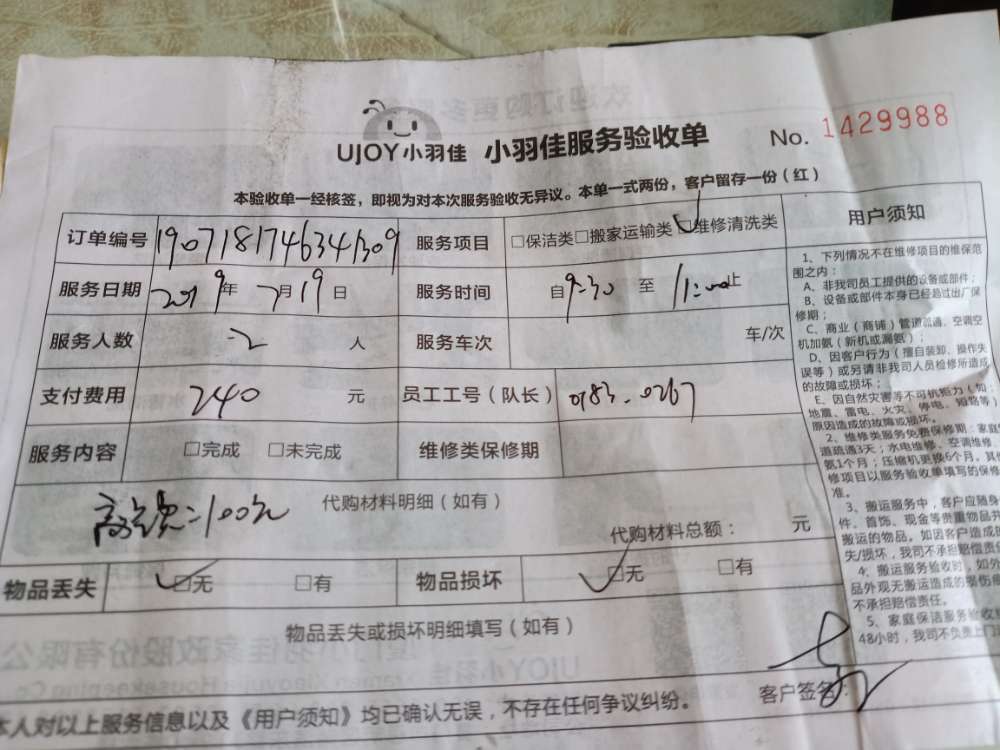 UJOY小羽佳 小羽佳服务验收单 No. 1429988
本验收单一经核签，即视为对本次服务验收无异议。本单一式两份，客户留存一份（红）
订单编号 190718174634309 服务项目 □保洁类□搬家运输类□维修清洗类
服务日期 2019年7月19日 服务时间 自9:30至11:00止
服务人数 二 人 服务车次 车/次
支付费用 240 元 员工工号（队长） 0183.0267
服务内容 □完成 □未完成 维修类保修期
高空费:100元 代购材料明细（如有）
代购材料总额： 元
物品丢失 □无 □有 物品损坏 □无 □有
物品丢失或损坏明细填写（如有）
本人对以上服务信息以及《用户须知》均已确认无误，不存在任何争议纠纷。 客户签名：
用户须知
1、下列情况不在维修项目的维保范
围之内：
A、非我司员工提供的设备或部件；
B、设备或部件本身已经超过出厂保
修期；
C、商业（商铺）管道疏通、空调空
机加氨（新机或漏氨）；
D、因客户行为（擅自装卸、操作失
误等）或另请非我司人员检修所造成
的故障或损坏；
E、因自然灾害等不可抗力（如：
地震、雷电、火灾、停电、短路等）
原因造成的故障或损坏。
2、维修类服务免费保修期：家庭
道疏通3天；水电维修、空调维修、
氨1个月；压缩机更换6个月。其
修项目以服务验收单填写的保修
准。
3、搬运服务中，客户应随身
件、首饰、现金等贵重物品
搬运的物品。如因客户造成的
失/损坏，我司不承担赔偿责任
4、搬运服务验收时，如外
品外观无搬运造成的损伤
不承担赔偿责任。
5、家庭保洁服务验收
48小时，我司不负责上门